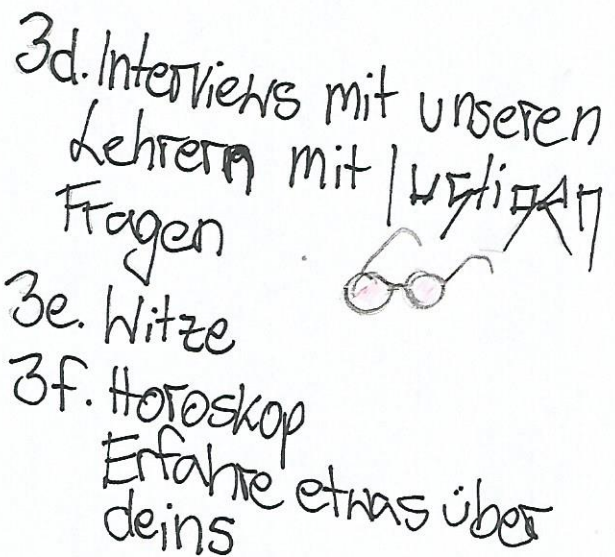 3d. Interviews mit unseren
Lehrern mit lustigen
Fragen
3e. Witze
3f. Horoskop
Erfahre etwas über
deins